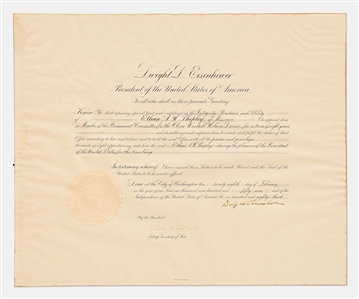 Dwight D. Eisenhower
President of the United States of America.
To all who shall see these presents, Greeting:
Know Ye, that reposing special trust and confidence in the Integrity, Prudence and Ability
of Ethan A. H. Shepley, of Missouri, I do appoint him
a Member of the Permanent Committee for the Oliver Wendell Holmes Devise, for a term of eight years
and do authorize and empower him to execute and fulfil the duties of that
Office according to law, and to have and to hold the said Office with all the powers, privileges and
thereunto of right appertaining unto him, the said Ethan A. H. Shepley, during the pleasure of the President
of the United States for the time being.
In testimony whereof, I have caused these Letters to be made Patent and the Seal of the
United States to be hereunto affixed.
Done at the City of Washington this day of
in the year of our Lord one thousand nine hundred and fifty and of the
Independence of the United States of America the one hundred and eighty
Dwight Eisenhower
By the President:
Acting Secretary of State